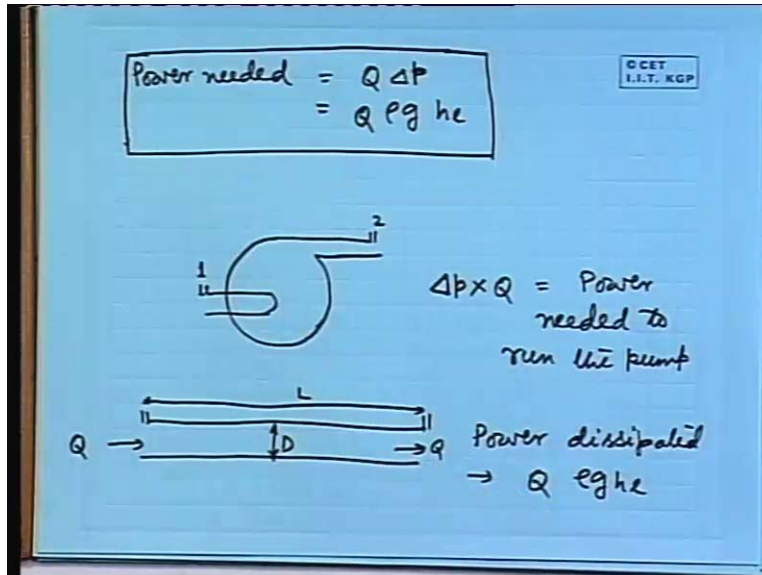 Power needed = Q Δp
= Q ρg he
© CET
I.I.T. KGP
1
2
Δp×Q = Power
needed to
run the pump
L
Q → D → Q
Power dissipated
→ Q ρghe